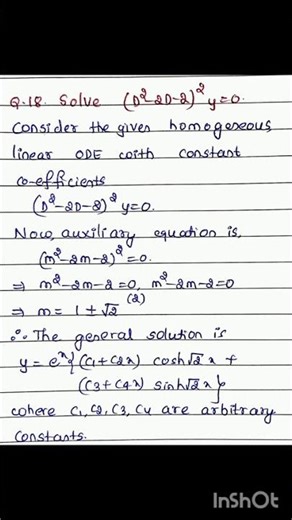 Q.18. Solve (D²-2D-2)² y=0.
Consider the given homogeseous
linear ODE coith constant
co-efficients
(D²-2D-2)² y=0.
Now, auxiliary equation is,
(m²-2m-2)²=0.
⇒ m²-2m-2=0, m²-2m-2=0
⇒ m= 1±√2 (2)
∴ The general solution is
y=eˣ{(C1+C2x) cosh√2x +
(C3+C4x) sinh√2x}
cohere C1,C2,C3,C4 are arbitrary
constants.
InShOt